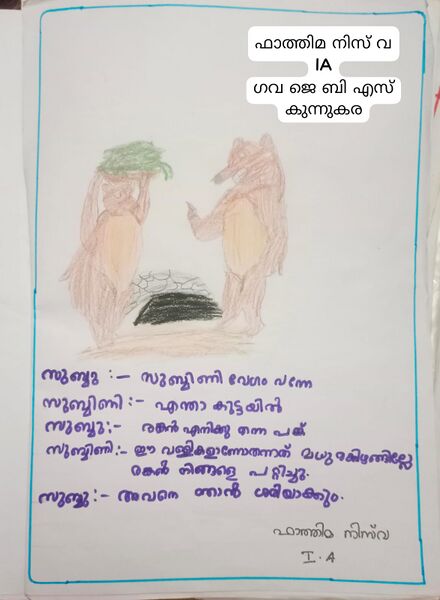 ഫാത്തിമ നിസ് വ
IA
ഗവ ജെ ബി എസ്
കുന്നുകര
സുബ്ബു :- സുബ്ബിണി വേഗം വന്നേ
സുബ്ബിണി :- എന്താ കുട്ടയിൽ
സുബ്ബു:- രങ്കൻ എനിക്കു തന്ന പങ്ക്
സുബ്ബിണി:- ഈ വള്ളികളാണോതന്നത് മധുരക്കിഴങ്ങില്ലേ
രങ്കൻ നിങ്ങളെ പറ്റിച്ചു.
സുബ്ബു:- അവനെ ഞാൻ ശരിയാക്കും.
ഫാത്തിമ നിസ്‌വ
I . A